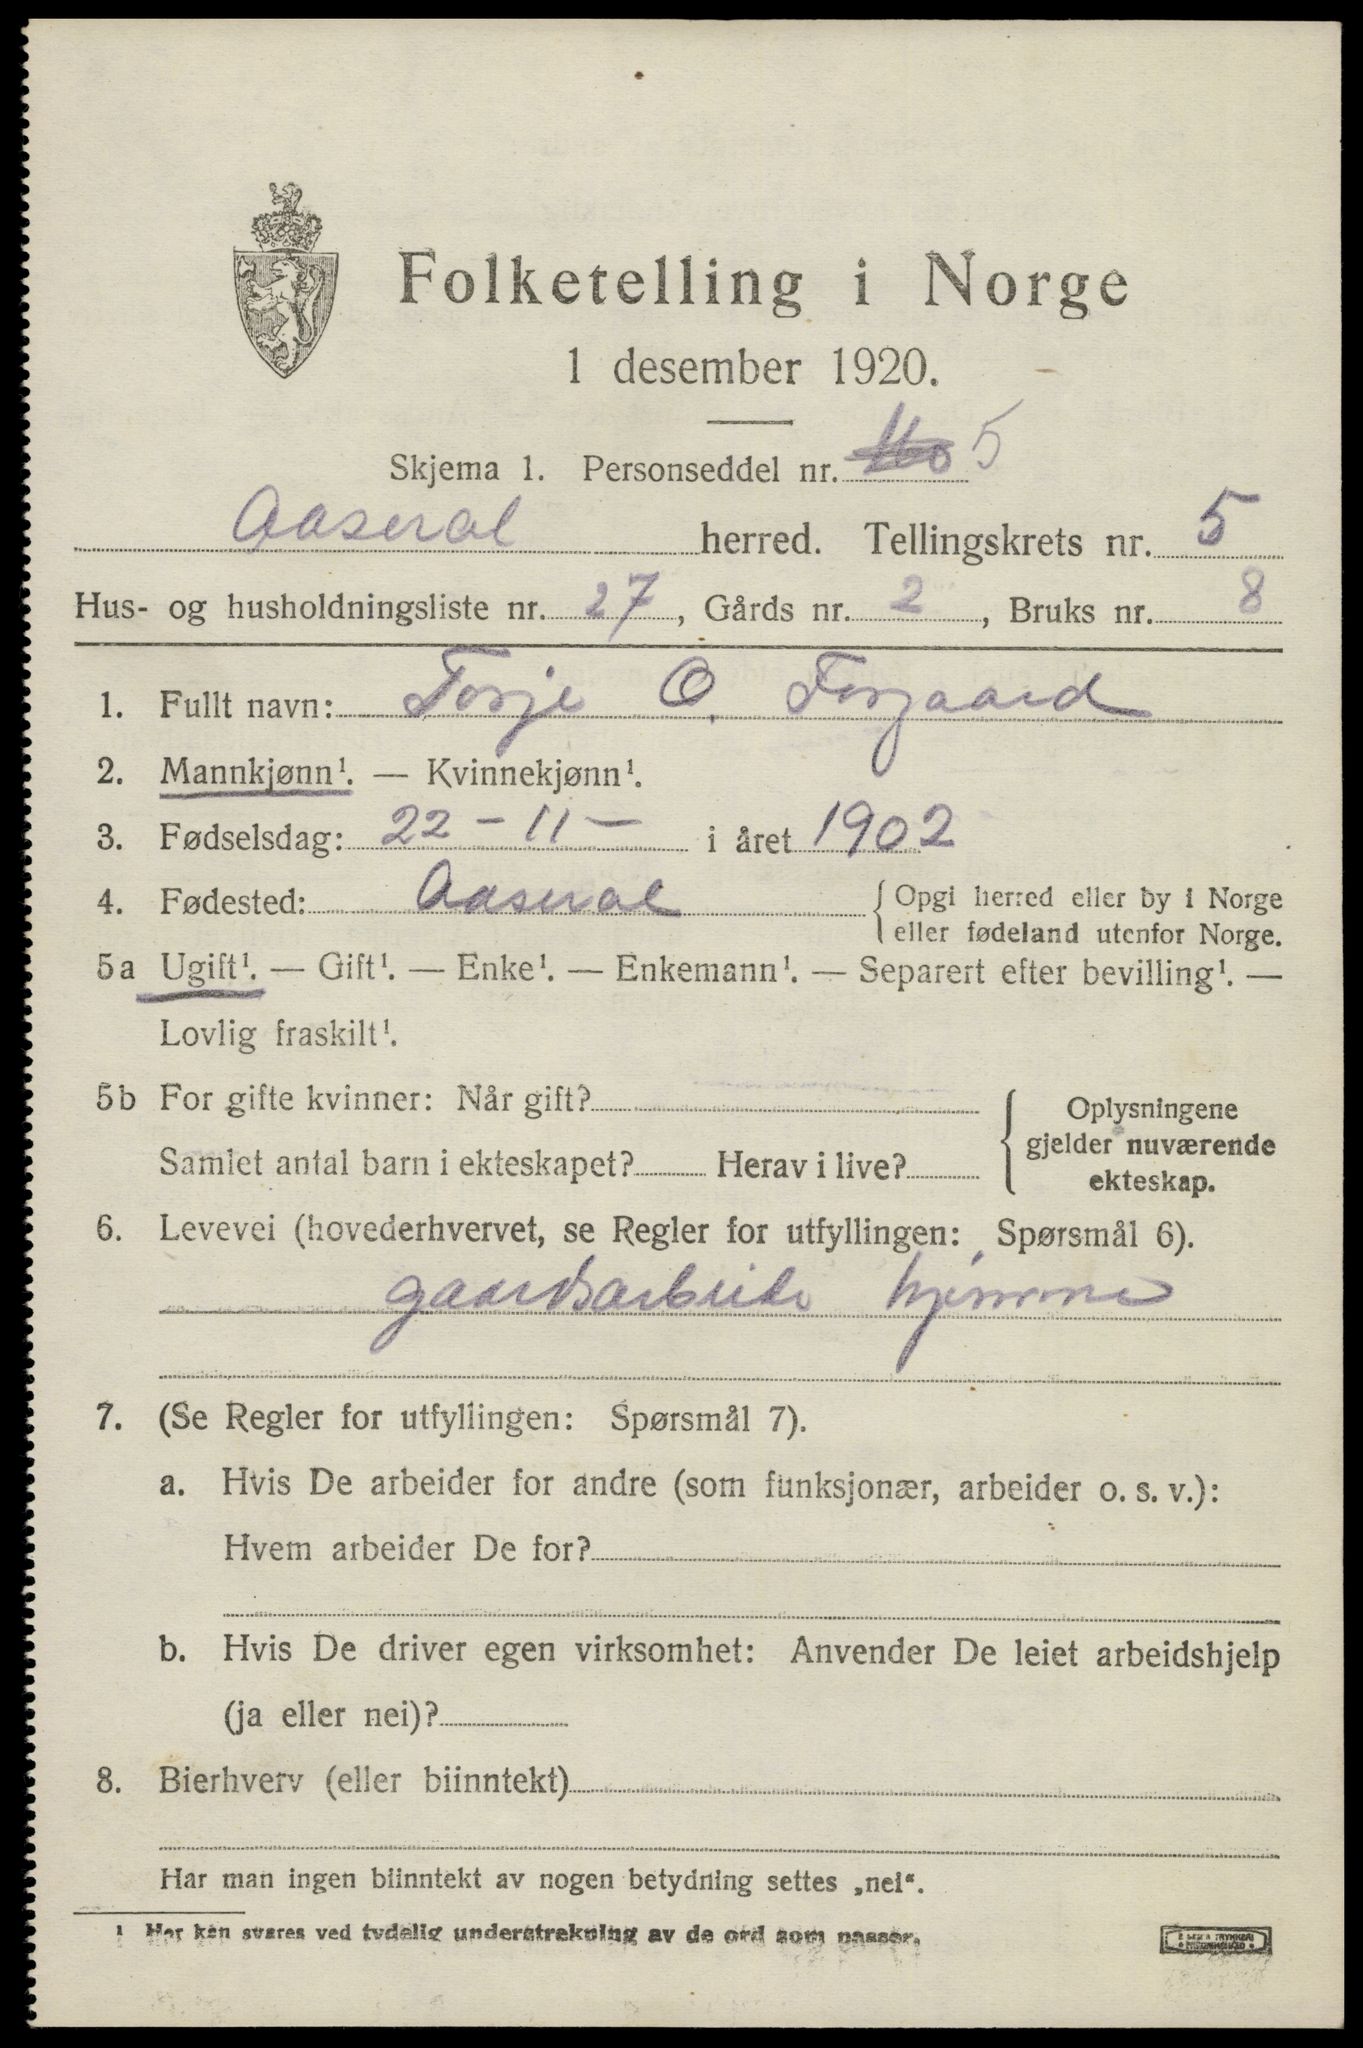 Folketelling i Norge
1 desember 1920.
Skjema 1. Personseddel nr. 5
Aaseral herred. Tellingskrets nr. 5
Hus- og husholdningsliste nr. 27, Gårds nr. 2, Bruks nr. 8
1. Fullt navn: Torje O. Torgaard
2. Mannkjønn¹. — Kvinnekjønn¹.
3. Fødselsdag: 22 - 11 - i året 1902
4. Fødested: Aaseral { Opgi herred eller by i Norge
eller fødeland utenfor Norge.
5a Ugift¹. — Gift¹. — Enke¹. — Enkemann¹. — Separert efter bevilling¹. —
Lovlig fraskilt¹.
5b For gifte kvinner: Når gift?
Samlet antal barn i ekteskapet? Herav i live?
{ Oplysningene
gjelder nuværende
ekteskap.
6. Levevei (hovederhvervet, se Regler for utfyllingen: Spørsmål 6).
gaardsarbeide hjemme
7. (Se Regler for utfyllingen: Spørsmål 7).
a. Hvis De arbeider for andre (som funksjonær, arbeider o. s. v.):
Hvem arbeider De for?
b. Hvis De driver egen virksomhet: Anvender De leiet arbeidshjelp
(ja eller nei)?
8. Bierhverv (eller biinntekt)
Har man ingen biinntekt av nogen betydning settes „nei“.
¹ Her kan svares ved tydelig understrekning av de ord som passer.